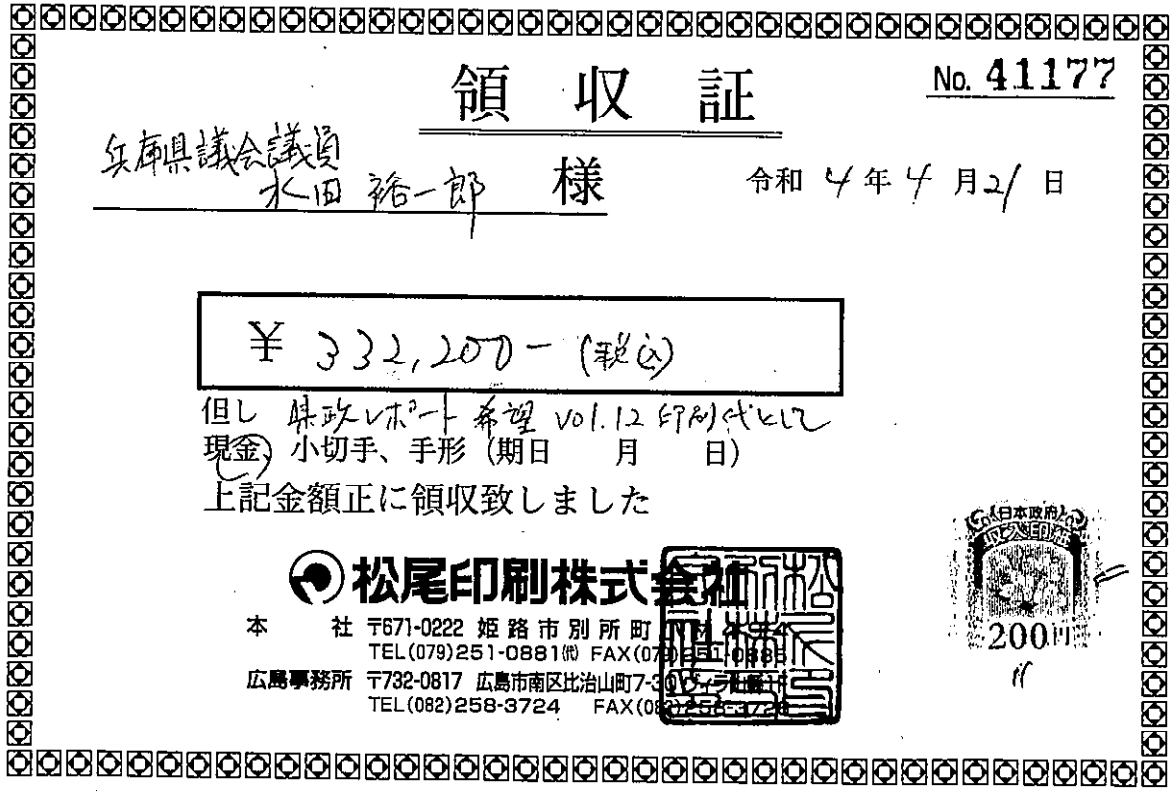 領収証
No. 41177
兵庫県議会議員
水田裕一郎 様
令和 4 年 4 月 21 日
¥ 332,200- (税込)
但し 県政レポート希望 vol.12 印刷代として
現金、小切手、手形 (期日 月 日)
上記金額正に領収致しました
松尾印刷株式会社
本 社 〒671-0222 姫路市別所町
TEL(079)251-0881㈹ FAX(079)251-0885
広島事務所 〒732-0817 広島市南区比治山町7-30
TEL(082)258-3724 FAX(082)258-3726
日本政府
収入印紙
200円